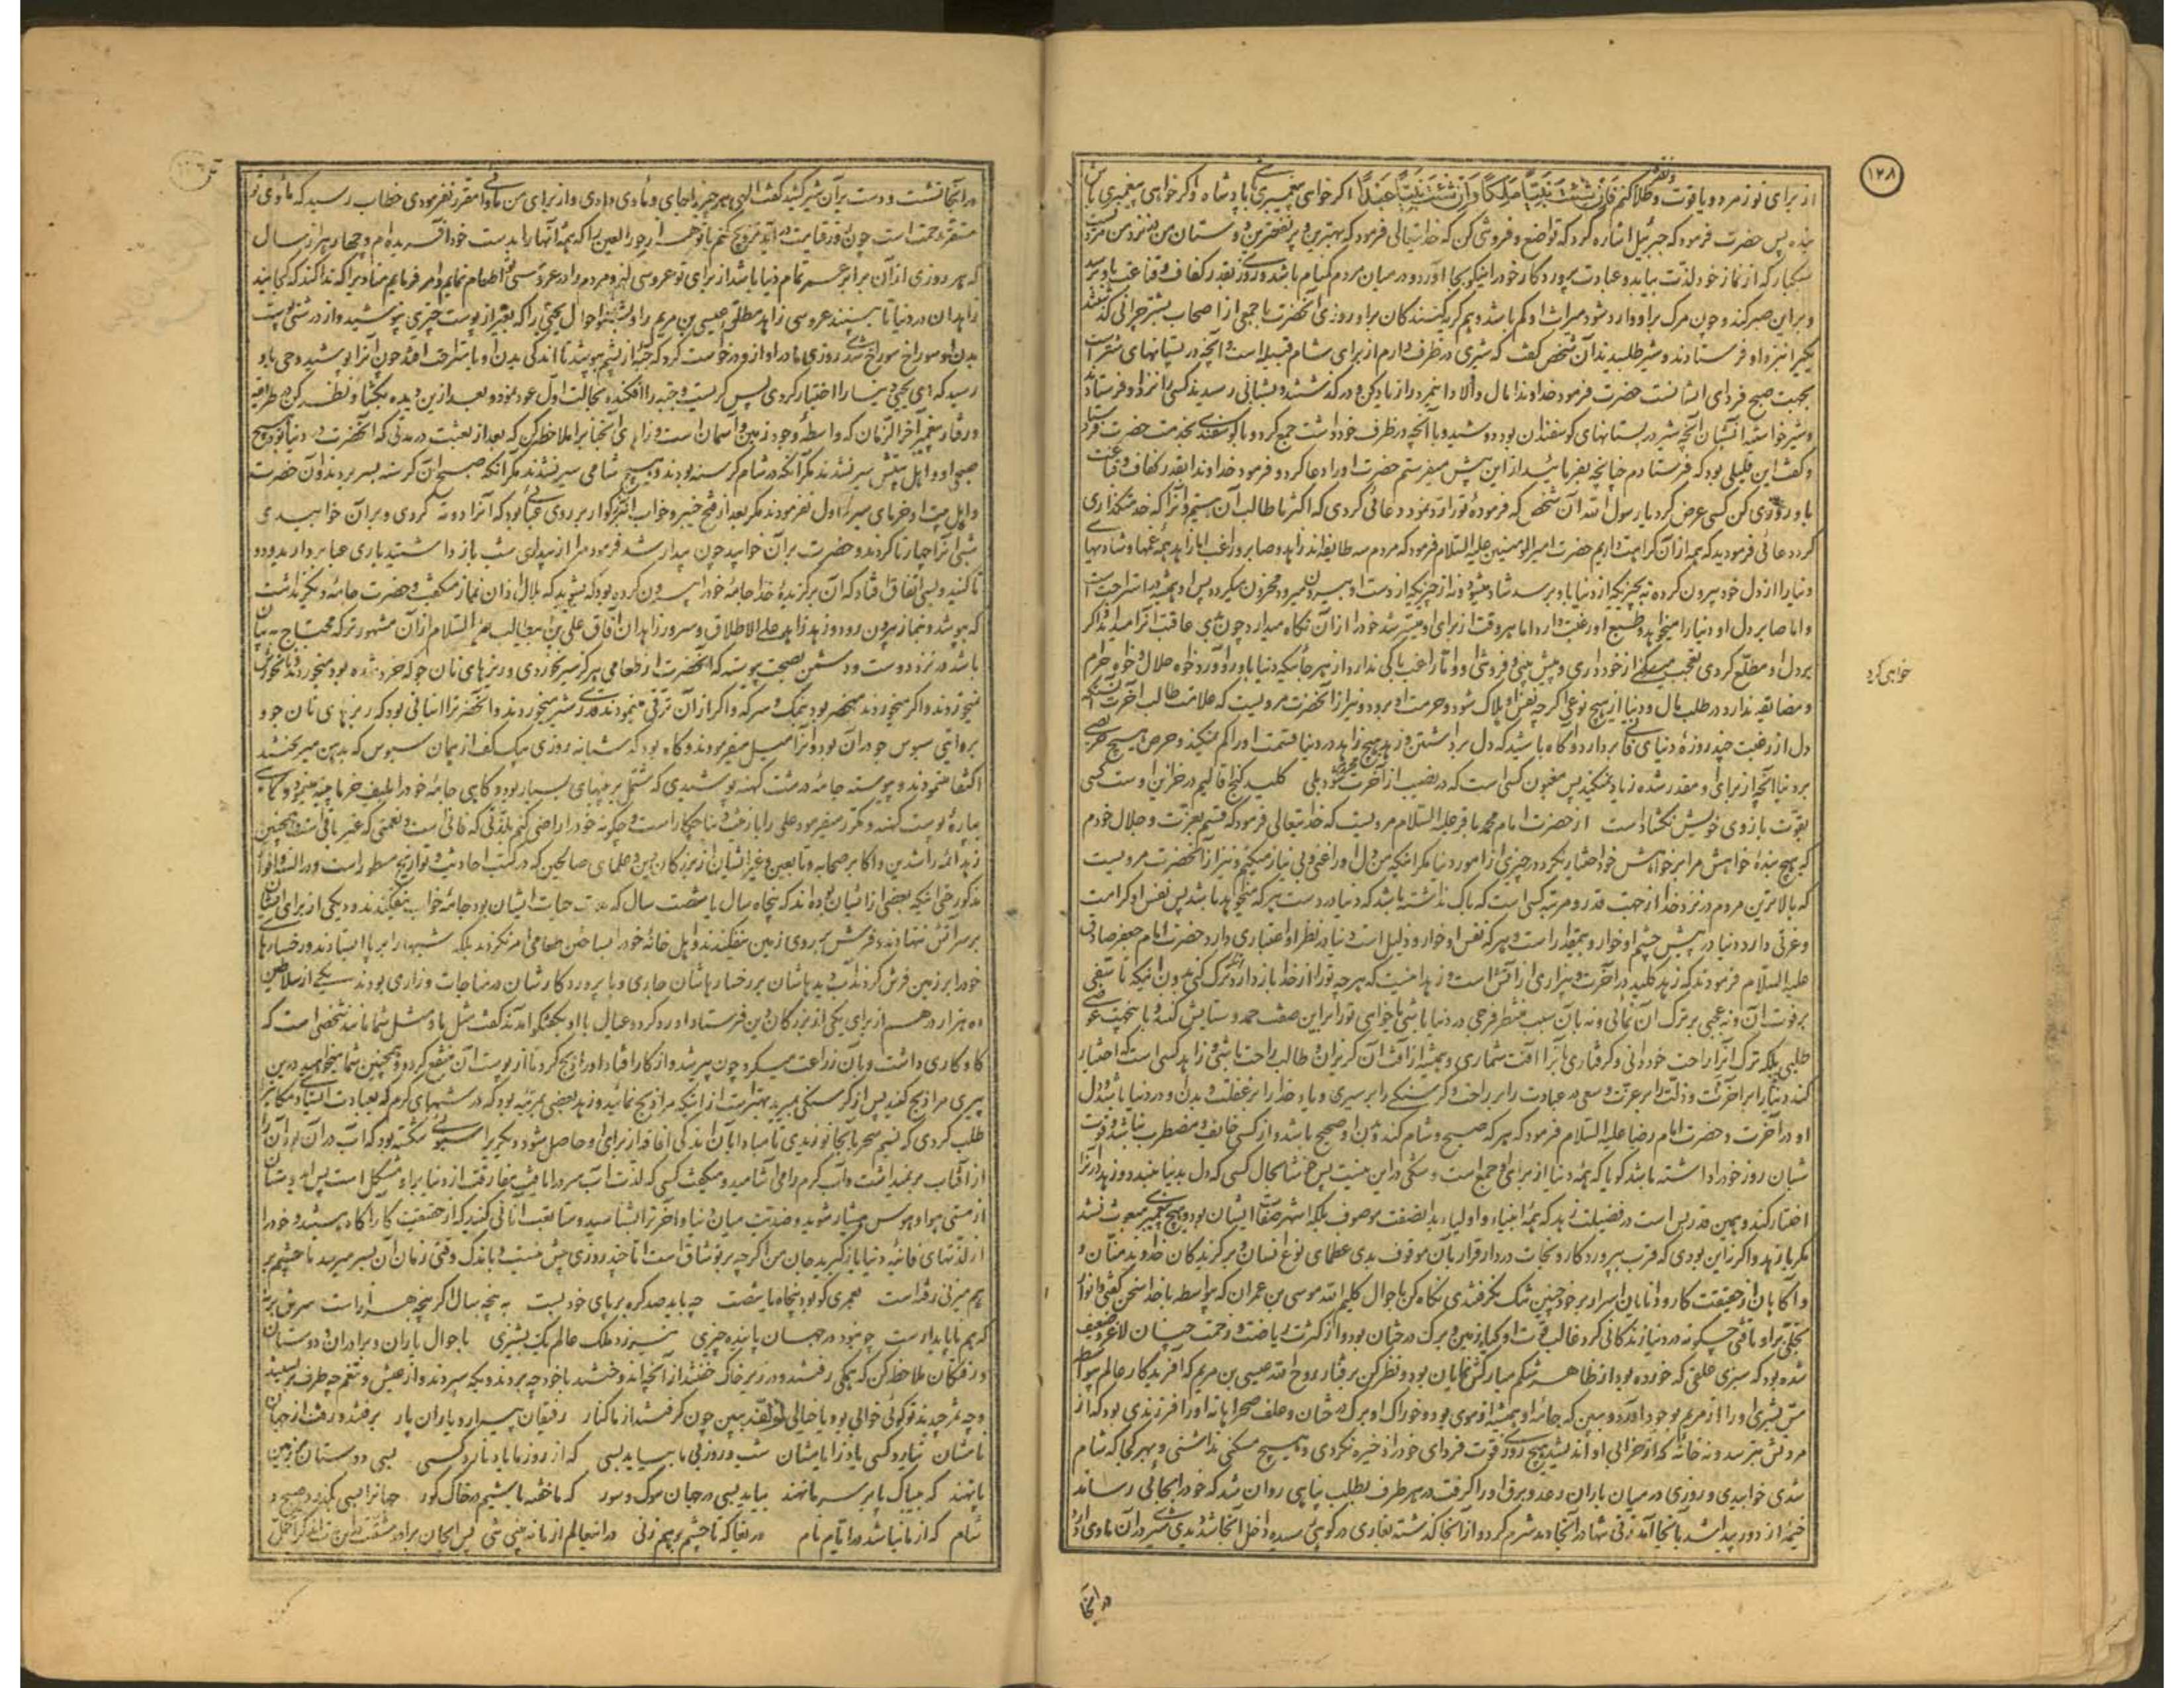 ۱۲۸
از برای تو زمرد و یاقوت و طلا کنم فَاِنْ شِئْتَ نَبِیّاً مَلِکاً وَاِنْ شِئْتَ نَبِیّاً عَبْداً اگر خواهی پیغمبری باش با پادشاه و اگر خواهی پیغمبری باش
بنده پس حضرت فرمود که جبرئیل اشاره کرد که تواضع و فروتنی کن که خدایتعالی فرمود که بهترین و پر نفعترین دوستان من در نزد من مردیست
سبکبار که از نماز خود لذت بیابد و عبادت پروردگار خود را نیکو بجا آورد و در میان مردم گمنام باشد و روزی بقدر کفاف و قناعت باو برسد
و بر این صبر کند و چون مرک بر او وارد شود میراث او کم باشد و هم گریه کنندگان بر او روزی آنحضرت با جمعی از اصحاب بشترچرانی گذشتند
یکیرا نزد او فرستادند و شیر طلبیدند آن شخص گفت که شیری در ظرف دارم از برای شام قبیله است و آنچه در پستانهای شتر است
بجهت صبح فردای ایشانست حضرت فرمود خداوندا مال و اولاد اینمرد را زیاد کن و در گذشتند و بشبانی رسیدند کسی را نزد او فرستادند
و شیر خواستند ایشان آنچه شیر در پستانهای گوسفندان بود دوشید و با آنچه در ظرف خود داشت جمع کرد و با گوسفندی بخدمت حضرت فرستاد
و گفت این قلیلی بود که فرستادم چنانچه بفرمائید از این بیش میفرستم حضرت او را دعا کرد و فرمود خداوندا بقدر کفاف و قناعت
باو روزی کن کسی عرض کرد یا رسول الله آن شخص که فرموده تو را رد نمود دعائی کردی که اکثر ما طالب آن هستیم و آنرا که خدمتگذاری
کرد دعائی فرمودید که همه از آن کراهت داریم حضرت امیرالمومنین علیه السلام فرمود که مردم سه طایفه اند زاهد و صابر و راغب اما زاهد همه غمها و شادیهای
دنیا را از دل خود بیرون کرده نه بچیزیکه از دنیا باو برسد شاد میشود و نه از چیزیکه از دست او بیرون میرود محزون میگردد پس او همیشه در استراحت است
و اما صابر دل او دنیا را میخواهد و طبع او رغبت دارد اما هر وقت از برای او میسر شد خود را از آن نگاه میدارد چون بدی عاقبت آنرا میداند و اگر
بر دل او مطلع گردی تعجب میکنی از خود داری و پیش بینی و فروتنی او و اما راغب باکی ندارد از هر جا که دنیا باو رو آورد خواه حلال و خواه حرام
و مضایقه ندارد در طلب مال و دنیا از هیچ نوعی اگر چه نفس او هلاک شود و حرمت او برود و نیز از آنحضرت مرویست که علامت طالب آخرت آنستکه
دل از رغبت چند روزه دنیای فانی بردارد و آگاه باشید که دل برداشتن و زهد هیچ زاهد در دنیا قسمت او را کم نمیکند و حرص هیچ حریصی
بر دنیا آنچه از برای او مقدر شده زیاد نمیکند پس مغبون کسی است که در نصیب از آخرت محروم شود بلی کلید گنج اقالیم در خزاین اوست کسی
بقوت بازوی خویش نگشاده است از حضرت امام محمد باقر علیه السلام مرویست که خدایتعالی فرمود که قسم بعزت و جلال خودم
که هیچ بنده خواهش مرا بر خواهش خود اختیار نکرد در چیزی از امور دنیا مگر اینکه من دل او را غنی و بی نیاز میکنم و نیز از آنحضرت مرویست
که بالاترین مردم در نزد خدا از جهت قدر و مرتبه کسی است که باک نداشته باشد که دنیا در دست هر که میخواهد باشد پس نفس او کرامت
و عزتی دارد دنیا در پیش چشم او خوار و بیمقدار است و هر که نفس او خوار و ذلیل است دنیا در نظر او اعتباری دارد حضرت امام جعفر صادق
علیه السلام فرمودند که زهد کلید در آخرت و بیزاری از آتش است و زهد اینست که هر چه تو را از خدا باز دارد ترک کنی بدون اینکه تاسفی
بر فوت آن و نه عجبی بر ترک آن نمائی و نه بآن سبب منتظر فرجی در دنیا باشی یا خواهی تو را بر این صفت حمد و ستایش کنند و یا بجهت عوضی
طلبی بلکه ترک آنرا راحت خود دانی و گرفتاری بآنرا آفت شماری و همیشه از آفت آن گریزان و طالب راحت باشی و زاهد کسی است که اختیار
کند دنیا را بر آخرت و ذلت را بر عزت و سعی در عبادت را بر راحت و گرسنگی را بر سیری و یاد خدا را بر غفلت و بدن او در دنیا باشد و دل
او در آخرت و حضرت امام رضا علیه السلام فرمود که هر که صبح و شام کند و بدن او صحیح باشد و از کسی خائف و مضطرب نباشد و قوت
شبان روز خود را داشته باشد گویا که همه دنیا از برای او جمع است و شکی در این نیست پس خوشا بحال کسی که دل بدنیا نبندد و زهد را در آنرا
اختیار کند و همین قدر بس است در فضیلت زهد که همه انبیاء و اولیاء بدانصفت موصوف بلکه اشهر صفات ایشان بود و هیچ پیغمبری مبعوث نشد
مگر با زهد و اگر نه این بودی که قرب پروردگار و نجات در دار قرار بآن موقوف بدی عظمای نوع انسان و برگزیدگان خداوند منان و
و آگاهان از حقیقت کار و دانایان اسرار بر خود چنین تنک نگرفتندی نگاه کن باحوال کلیم الله موسی بن عمران که بواسطه با خدا سخن گفتی و انوار
تجلی بر او تافتی چگونه در دنیا زندگانی کرد غالب قوت او گیاه زمین و برک درختان بود و از کثرت ریاضت و زحمت چنان لاغر و ضعیف
شده بود که سبزی علفی که خورده بود از ظاهر شکم مبارکش نمایان بود و نظر کن برفتار روح الله عیسی بن مریم که آفریدگار عالم بواسطه
مس بشری او را از مریم بوجود آورد و ببین که جامه او همیشه از موی بود و خوراک او برک درختان و علف صحرا بانه او را فرزندی بود که از
مردنش بترسد و نه خانه که از خرابی او اندیشد هیچ روزی قوت فردای خود را ذخیره نکردی و هیچ مسکنی نداشتی و بهر کجا که شام
شدی خوابیدی و روزی در میان باران رعد و برق او را گرفت در هر طرف بطلب پناهی روان شد که خود را بجائی رساند
خیمه از دور پیدا شد بآنجا آمد زنی تنها در آنجا دید شرم کرد و از آنجا گذشته بغاری در کوهی رسیده داخل آنجا شد دید شیری در آن ماوی دارد
خواهی کرد
در آنجا
در آنجا نشست و دست بر آن شیر کشید گفت الهی هر چیز را جای و مأوی دادی و از برای من ماوائی مقرر نفرمودی خطاب رسید که مأوی تو
مستقر رحمت است چون روز قیامت در آید تزویج کنم با تو هزار حور العین را که همه آنها را بدست خود آفریده ام و چهار هزار سال
که هر روزی از آن برابر عمر تمام دنیا باشد از برای تو عروسی کنم و مردم را در عروسی تو اطعام نمایم و امر فرمایم منادیرا که ندا کند که کجایند
زاهدان در دنیا تا ببینند عروسی زاهد مطلق عیسی بن مریم را و بشنو احوال یحیی را که بغیر از پوست چیزی نپوشید و از درشتی پوست
بدن او سوراخ سوراخ شد روزی مادر او از او درخواست کرد که جبه از پشم بپوشد تا اندکی بدن او باستراحت افتد چون آنرا پوشید وحی باو
رسید که ای یحیی دنیا را اختیار کردی پس گریست و جبه را افکنده بحالت اول عود نمود و بعد از این دیده بگشا و نظر کن در طریقه
و رفتار پیغمبر آخر الزمان که واسطه وجود زمین و آسمان است و زاهدی آنجنابرا ملاحظه کن که بعد از بعثت در مدتی که آنحضرت در دنیا بود هیچ
صبحی او و اهل بیتش سیر نشدند مگر آنکه در شام گرسنه بودند و هیچ شامی سیر نشدند مگر آنکه صبح آن گرسنه بسر بردند و آن حضرت
و اهل بیت او خرمای سیر تناول نفرمودند مگر بعد از فتح خیبر و خواب آن بزرگوار بر روی عبائی بود که آنرا دو ته کردی و بر آن خوابیدی
شبی آنرا چهار تا کردند و حضرت بر آن خوابید چون بیدار شد فرمود مرا از بیداری شب باز داشتید باری عبا بردارید و دو
تا کنید و بسی اتفاق افتاد که آن برگزیده خدا جامه خود را بیرون کرده بود که بشوید که بلال اذان نماز میگفت و حضرت جامه دیگر نداشت
که بپوشد و بنماز بیرون رود و زهد زاهد علی الاطلاق و سرور زاهدان آفاق علی بن ابیطالب علیه السلام از آن مشهورتر که محتاج به بیان
باشد در نزد دوست و دشمن بصحت پیوسته که آنحضرت از طعامی هرگز سیر نخوردی و ریزه های نان جو که خرد شده بود میخوردند و نانخورش
نمیخوردند و اگر میخوردند منحصر بود بنمک و سرکه و اگر از آن ترقی مینمودند قدری شیر میخوردند و آنحضرترا انبانی بود که ریزه های نان جو و
بروایتی سبوس جو در آن بود و آنرا میل میفرمودند و گاه بود که شبانه روزی بیک کف از همان سبوس که بدهن میریختند
اکتفا مینمودند و پیوسته جامه درشت کهنه پوشیدی که مشتمل بر پینهای بسیار بود و گاهی جامه خود را بلیف خرما پینه مینمود و گاهی
بپاره پوست کهنه و مکرر میفرمود علی را با زینت دنیا چکار است و چگونه خود را راضی کنم بلذتی که فانی است و نعمتی که غیر باقی است و همچنین
زهد ائمه راشدین و اکابر صحابه و تابعین و غیر ایشان از بزرگان دین و علمای صالحین که در کتب احادیث و تواریخ مسطور است و در السنه و افواه
مذکور حتی اینکه بعضی از ایشان بوده اند که پنجاه سال یا شصت سال که مدت حیات ایشان بود جامه خواب نیفکندند و دیکی از برای ایشان
بر سر آتش ننهادند و فرش بر روی زمین نیفکندند و اهل خانه خود را بساختن طعامی امر نکردند بلکه شبها را بر پا ایستادند و رخسارها
خود را بر زمین فرش کردند آب دیده هاشان بر رخسارهاشان جاری و با پروردگارشان در مناجات و زاری بودند یکی از سلاطین
ده هزار درهم از برای یکی از بزرگان دین فرستاد او رد کرد و عیال با او بگفتگو آمدند گفت مثل با و مثل شما مانند شخصی است که
گاو کاری داشت و بآن زراعت میکرد چون پیر شد و از کار افتاد او را ذبح کرد تا از پوست آن منتفع گردد و همچنین شما میخواهید در این
پیری مرا ذبح کنید پس از گرسنگی بمیرید بهتر است از اینکه مرا ذبح نمائید و زهد بعضی بمرتبه بود که در شبهای گرم که بعبادت ایستاد مکانیرا
طلب کردی که نسیم سحر بآنجا نوزیدی تا مبادا بآن اندکی افاقه از برای او حاصل شود و دیگریرا سبوئی شکسته بود که آب در آن بود آن را
از آفتاب بر نمیداشت و آب گرم را می آشامید و میگفت کسی که لذت آب سرد را یافت مفارقت از دنیا بر او مشکل است پس ای دوستان
از مستی هوا و هوس هشیار شوید و ضدیت میان دنیا و آخرت را بشناسید و متابعت آنانی کنید که از حقیقت کار آگاه هستند و خود را
از لذتهای فانیه دنیا باز گیرید جان من اگر چه بر تو شاق است اما چند روزی بیش نیست و باندک وقتی زمان آن بسر میرسد تا چشم بر
هم میزنی رفته است بعمری کو بود پنجاه یا شصت چه باید صد گره بر پای خود بست به پنجه سال اگر پنجه هزار است سرش بر نه
که هم ناپایدار است چو نبود در جهان پاینده چیزی نیرزد ملک عالم یک پشیزی باحوال یاران و برادران و دوستان
و رفتگان ملاحظه کن که همگی رفتند و در زیر خاک خفتند از آنچه اندوختند با خود چه بردند و بکه سپردند و از عیش و تنعم چه طرف بر بستند
و چه ثمر چیدند تو گوئی خوابی بود یا خیالی ببین چون گرفتند از ما کنار رفیقان بسیار و یاران یار برفتند و رفت از جهان
نامشان نیارد کسی یاد از ایامشان شب و روز بی ما بیاید بسی که از روز ما یاد نارد کسی بسی دوستان بر زمین
پا نهند که بیباک پا بر سر ما نهند بیاید بسی در جهان سوک و سور که ما خفته باشیم در خاک گور جهانرا بسی بگذرد صبح و
شام که از ما نباشد در ایام نام دریغا که تا چشم بر هم زنی در اینعالم از ما نه بینی تنی پس ایجان برادر مشقت این